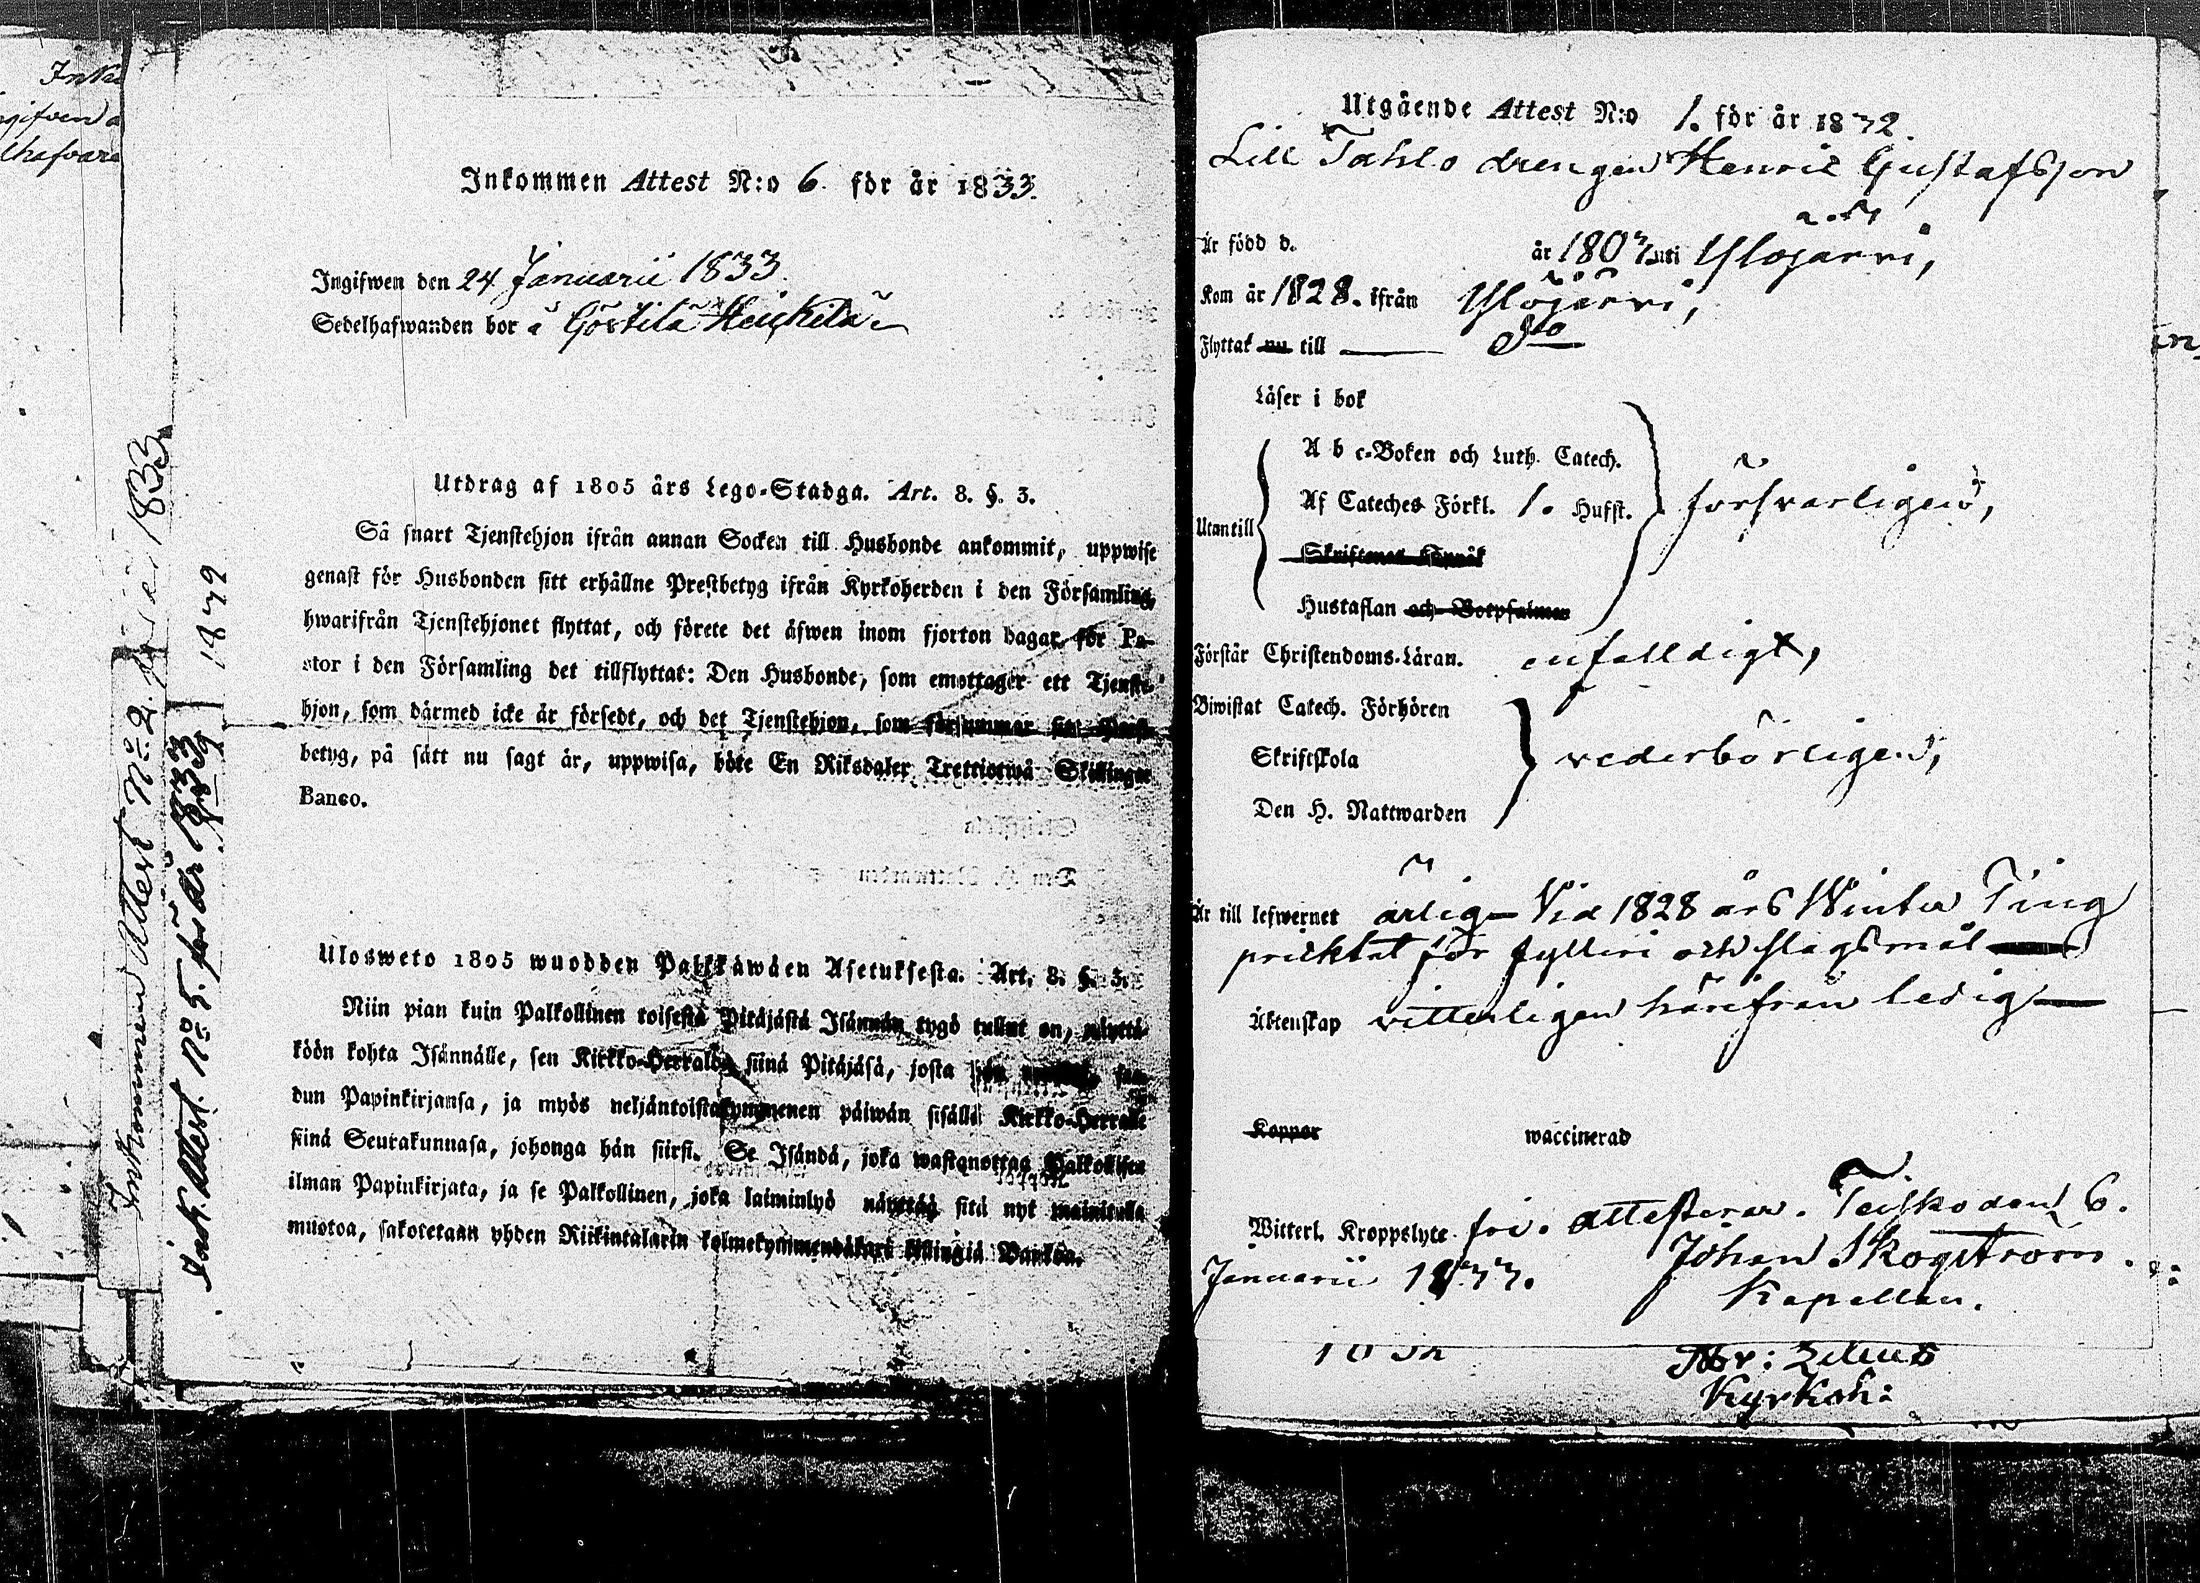 Inkommen Attest N:o 6. för år 1833.
Ingifwen den 24 Januarii 1833.
Sedelhafwanden bor å Görtilä Heickilä
Utdrag af 1805 års Lego-Stadga. Art. 8. §. 3.
Så snart Tjenstehjon ifrån annan Socken till Husbonde ankommit, uppwise
genast för Husbonden sitt erhållne Prestbetyg ifrån Kyrkoherden i den Församling,
hwarifrån Tjenstehjonet flyttat, och förete det äfwen inom fjorton dagar för Pa-
stor i den Församling det tillflyttat: Den Husbonde, som emottager ett Tjenste-
hjon, som därmed icke är försedt, och det Tjenstehjon, som försummar sitt Prest-
betyg, på sätt nu sagt är, uppwisa, böte En Riksdaler Trettiotwå Skillingar
Banco.
Ulosweto 1805 wuodden Palkkawäen Asetuksesta. Art. 8. §. 3.
Niin pian kuin Palkollinen toisesta Pitäjästä Isännän tygö tullut on, näyttä-
köön kohta Isännälle, sen Kirkko-Herralda siinä Pitäjäsä, josta hän saa-
dun Papinkirjansa, ja myös neljäntoistakymmenen päiwän sisällä Kirkko-Herralle
siinä Seurakunnasa, johonga hän siirsi. Se Isändä, joka wastanottaa Palkollisen
ilman Papinkirjata, ja se Palkollinen, joka laiminlyö näyttää sitä nyt mainittua
muotoa, sakotetaan yhden Riikintalarin kolmekymmendäkaxi killingiä Bankoa.
Inkommen Attest No 2. för år 1833
Ink. Attest. No 5. för år 1833
Utgående Attest N:o 1. för år 1832.
Lill Tahlo drengen Henric Gustafsson
Är född d. år 1803 uti Ylöjärvi,
Kom år 1828. ifrån Ylöjärvi,
Flyttat nu till Do
Läser i bok
A b c-Boken och Luth. Catech.
Af Cateches Förkl. 1. Hufst. försvarligen,
Utantill
Skriftenes Spräk
Hustaflan och Botpsalmen
Förstår Christendoms-Läran. enfalldigt,
Biwistat Catech. Förhören
Skriftskola vederbörligen,
Den H. Nattwarden
Är till lefwernet ärlig – Vid 1828 års Winter Ting
pricktat för fylleri och slagsmål
Äktenskap vitterligen härifrån ledig
Koppor waccinerad
Witterl. Kroppslyte fri. attesterar. Teisko den 6.
Januarii 1833. Johan Skogström.
Kapellan.
Kyrkoh: